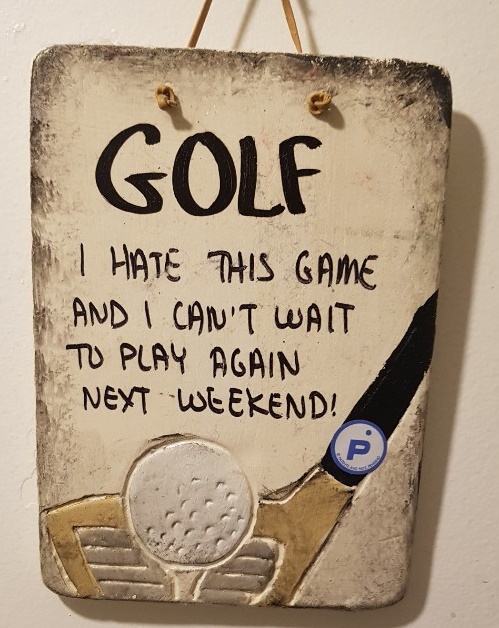 GOLF
I HATE THIS GAME
AND I CAN'T WAIT
TO PLAY AGAIN
NEXT WEEKEND!
P